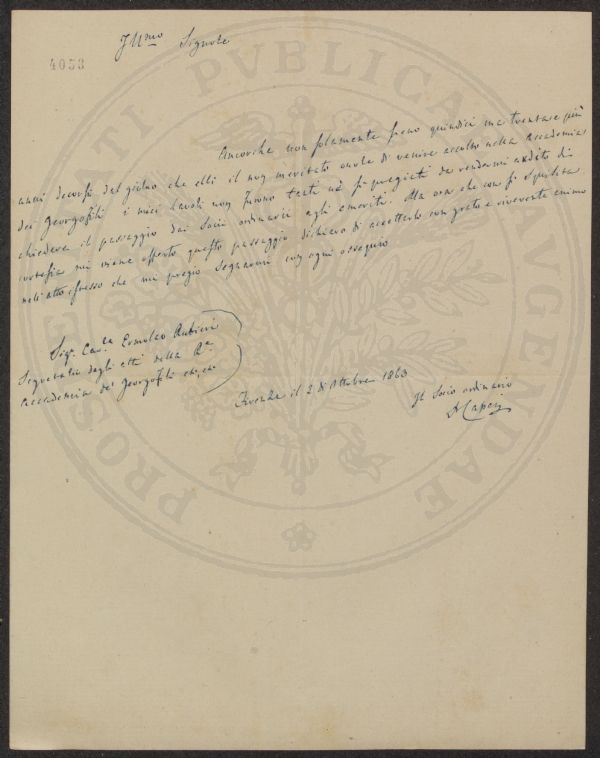 Illmo Signore
4053
Ancorche non solamente sieno quindici ma trentase più
anni decorsi dal giorno che ebbi il non meritato onore di venire accolto nella Accademia
dei Georgofili i miei lavori non furono tanti nè sì pregiati da rendermi ardito di
chiedere il passaggio dai Socii ordinarii agli emeriti. Ma ora che con sì squisita
cortesia mi viene offerto questo passaggio dichiaro di accettarlo con grato e riverente animo
nell'atto stesso che mi pregio segnarmi con ogni ossequio
Sigr. Cavre Ermolao Rubieri
Segretario degli atti della Rle
Accademia dei Georgofili ec. ec.
Firenze il 2 di Ottobre 1863
Il Socio ordinario
Capei
PROSPERITATI PVBLICAE AVGENDAE